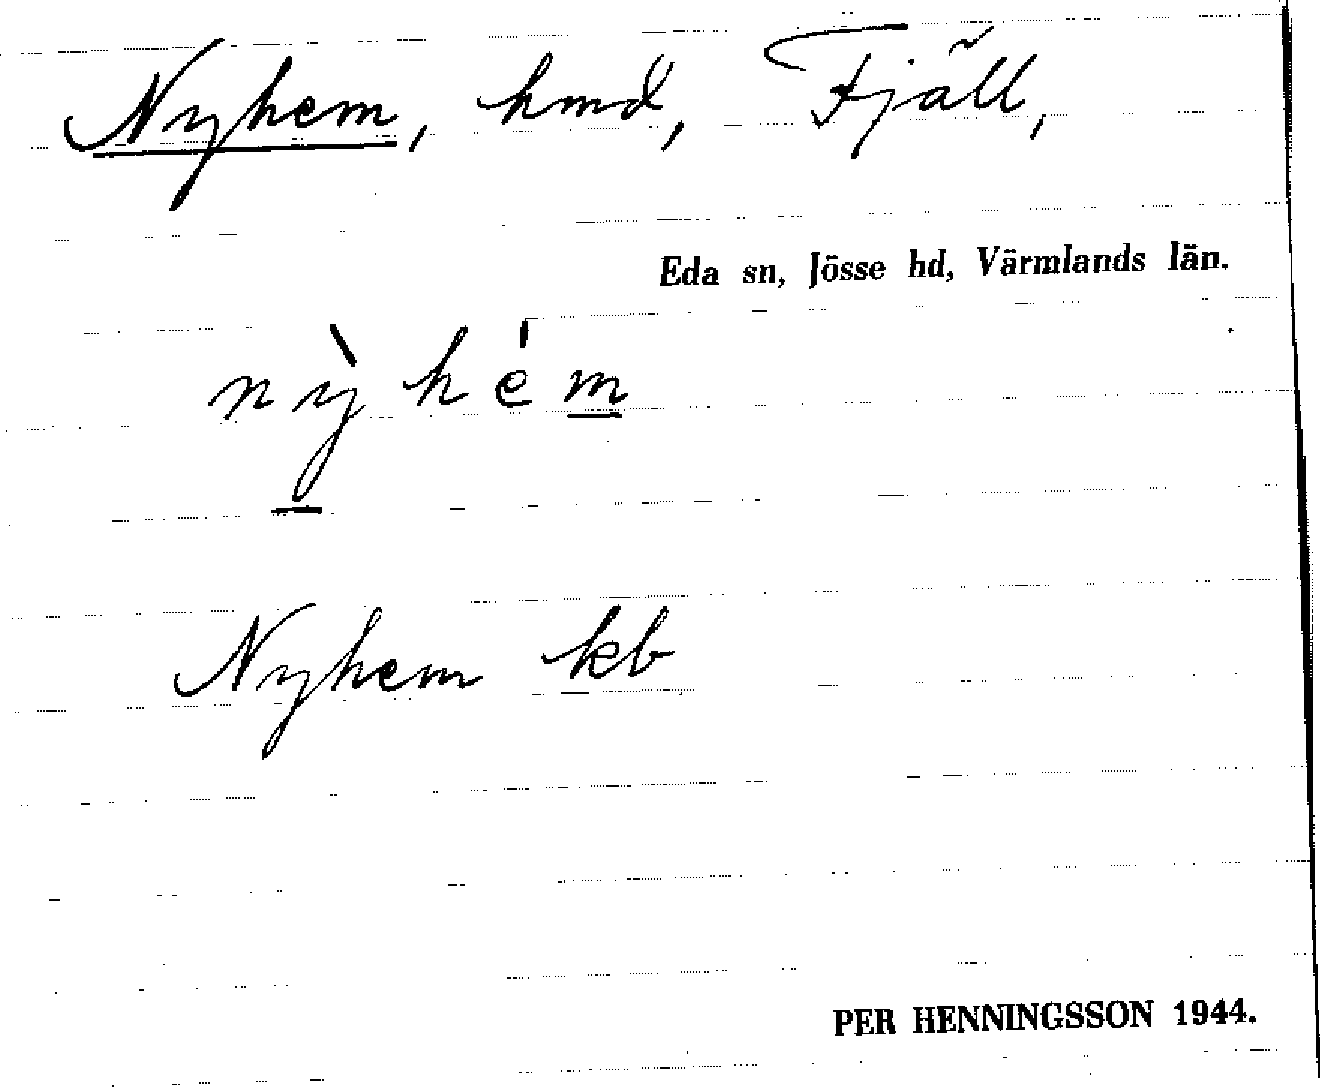 Nyhem, hmd, Fjäll,
Eda sn, Jösse hd, Värmlands län.
nỳhém
Nyhem kb
PER HENNINGSSON 1944.